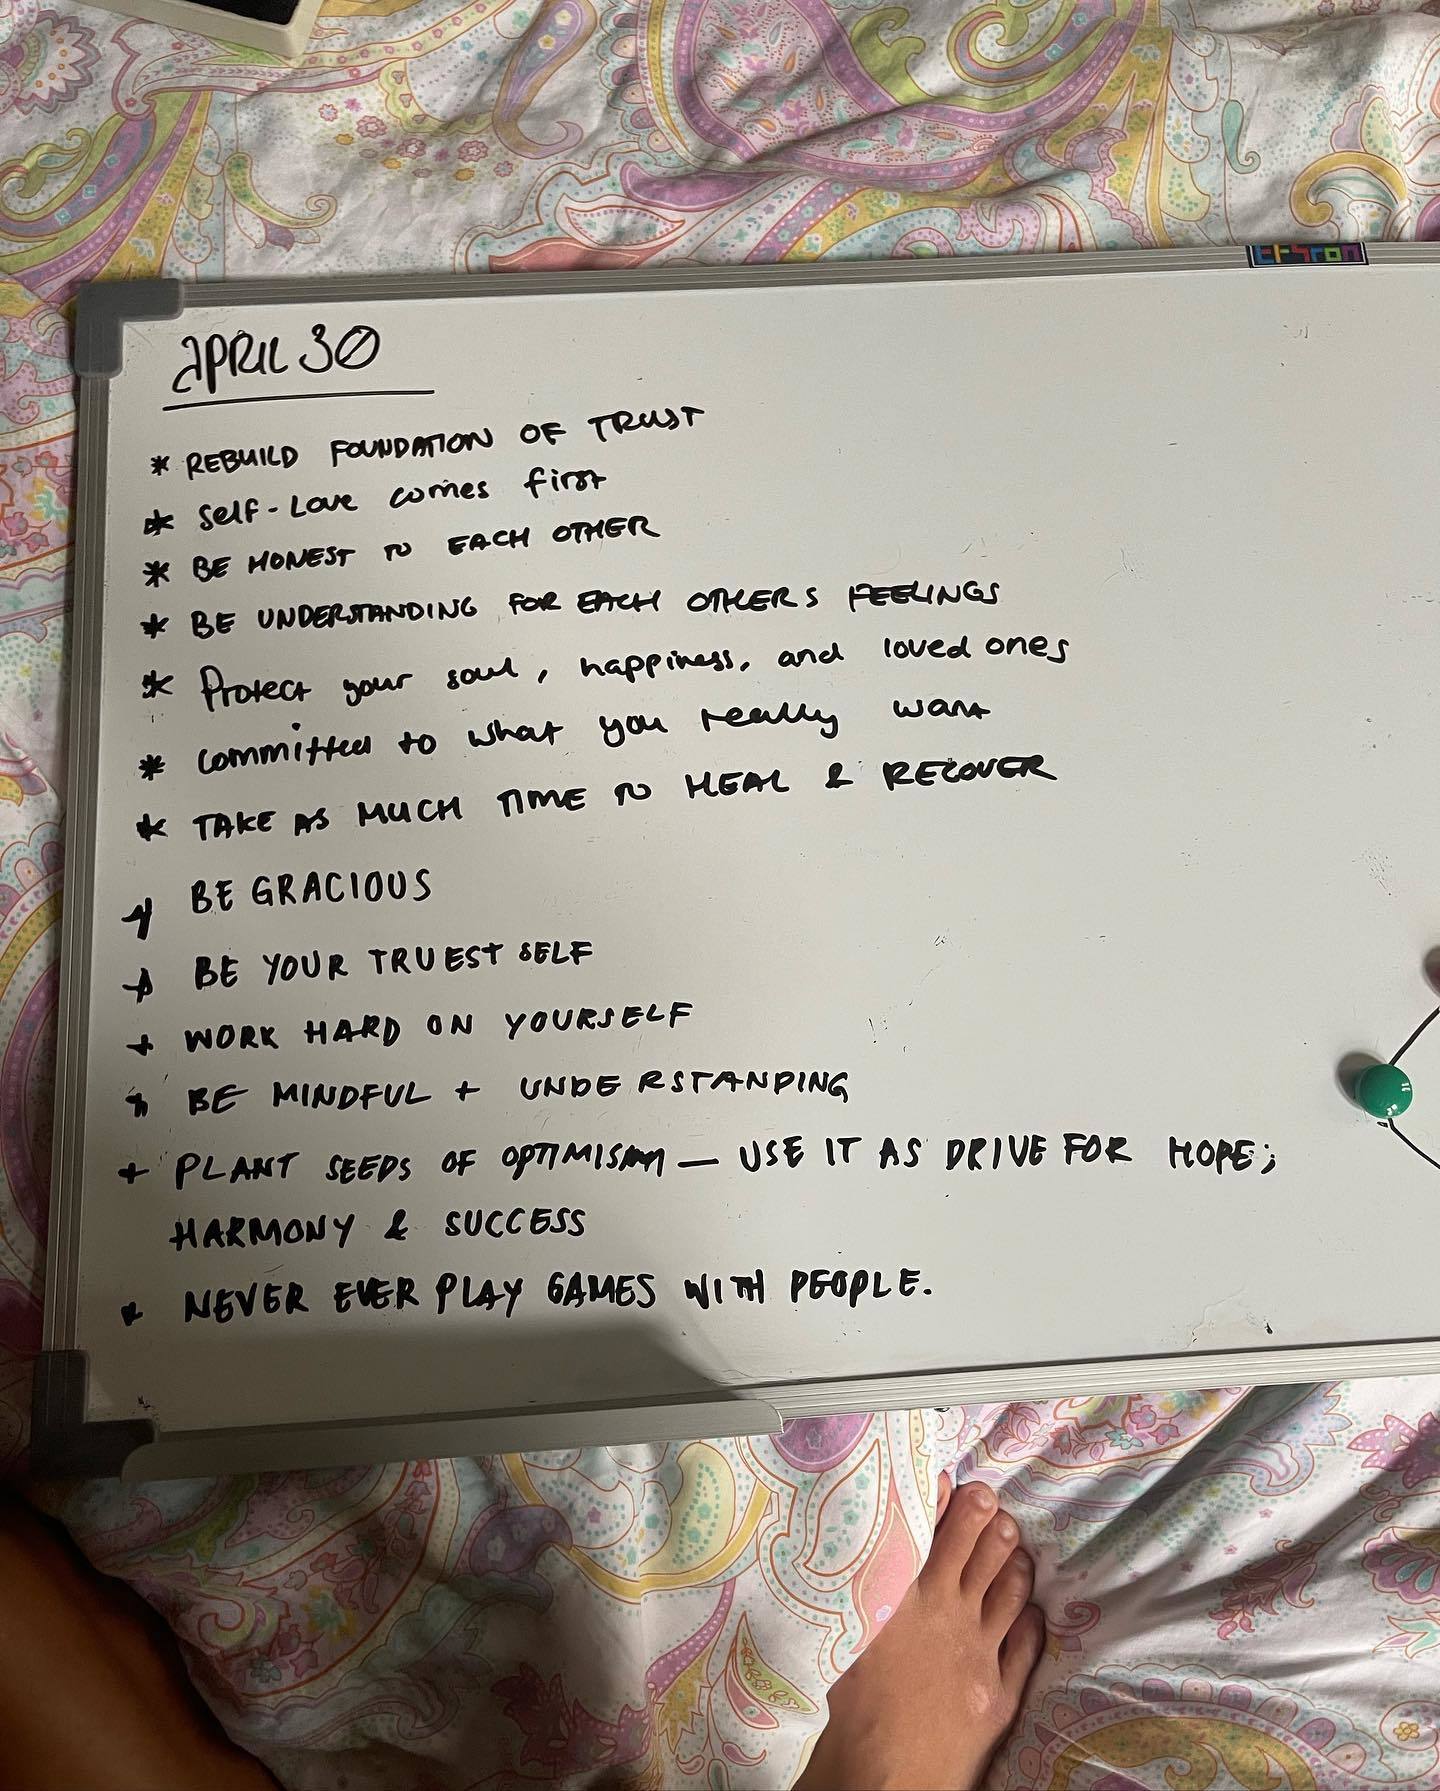 APRIL 30
* REBUILD FOUNDATION OF TRUST
* Self-Love comes first
* BE HONEST TO EACH OTHER
* BE UNDERSTANDING FOR EACH OTHERS FEELINGS
* Protect your soul, happiness, and loved ones
* committed to what you really want
* TAKE AS MUCH TIME TO HEAL & RECOVER
* BE GRACIOUS
* BE YOUR TRUEST SELF
+ WORK HARD ON YOURSELF
* BE MINDFUL + UNDERSTANDING
+ PLANT SEEDS OF OPTIMISM — USE IT AS DRIVE FOR HOPE;
HARMONY & SUCCESS
* NEVER EVER PLAY GAMES WITH PEOPLE.